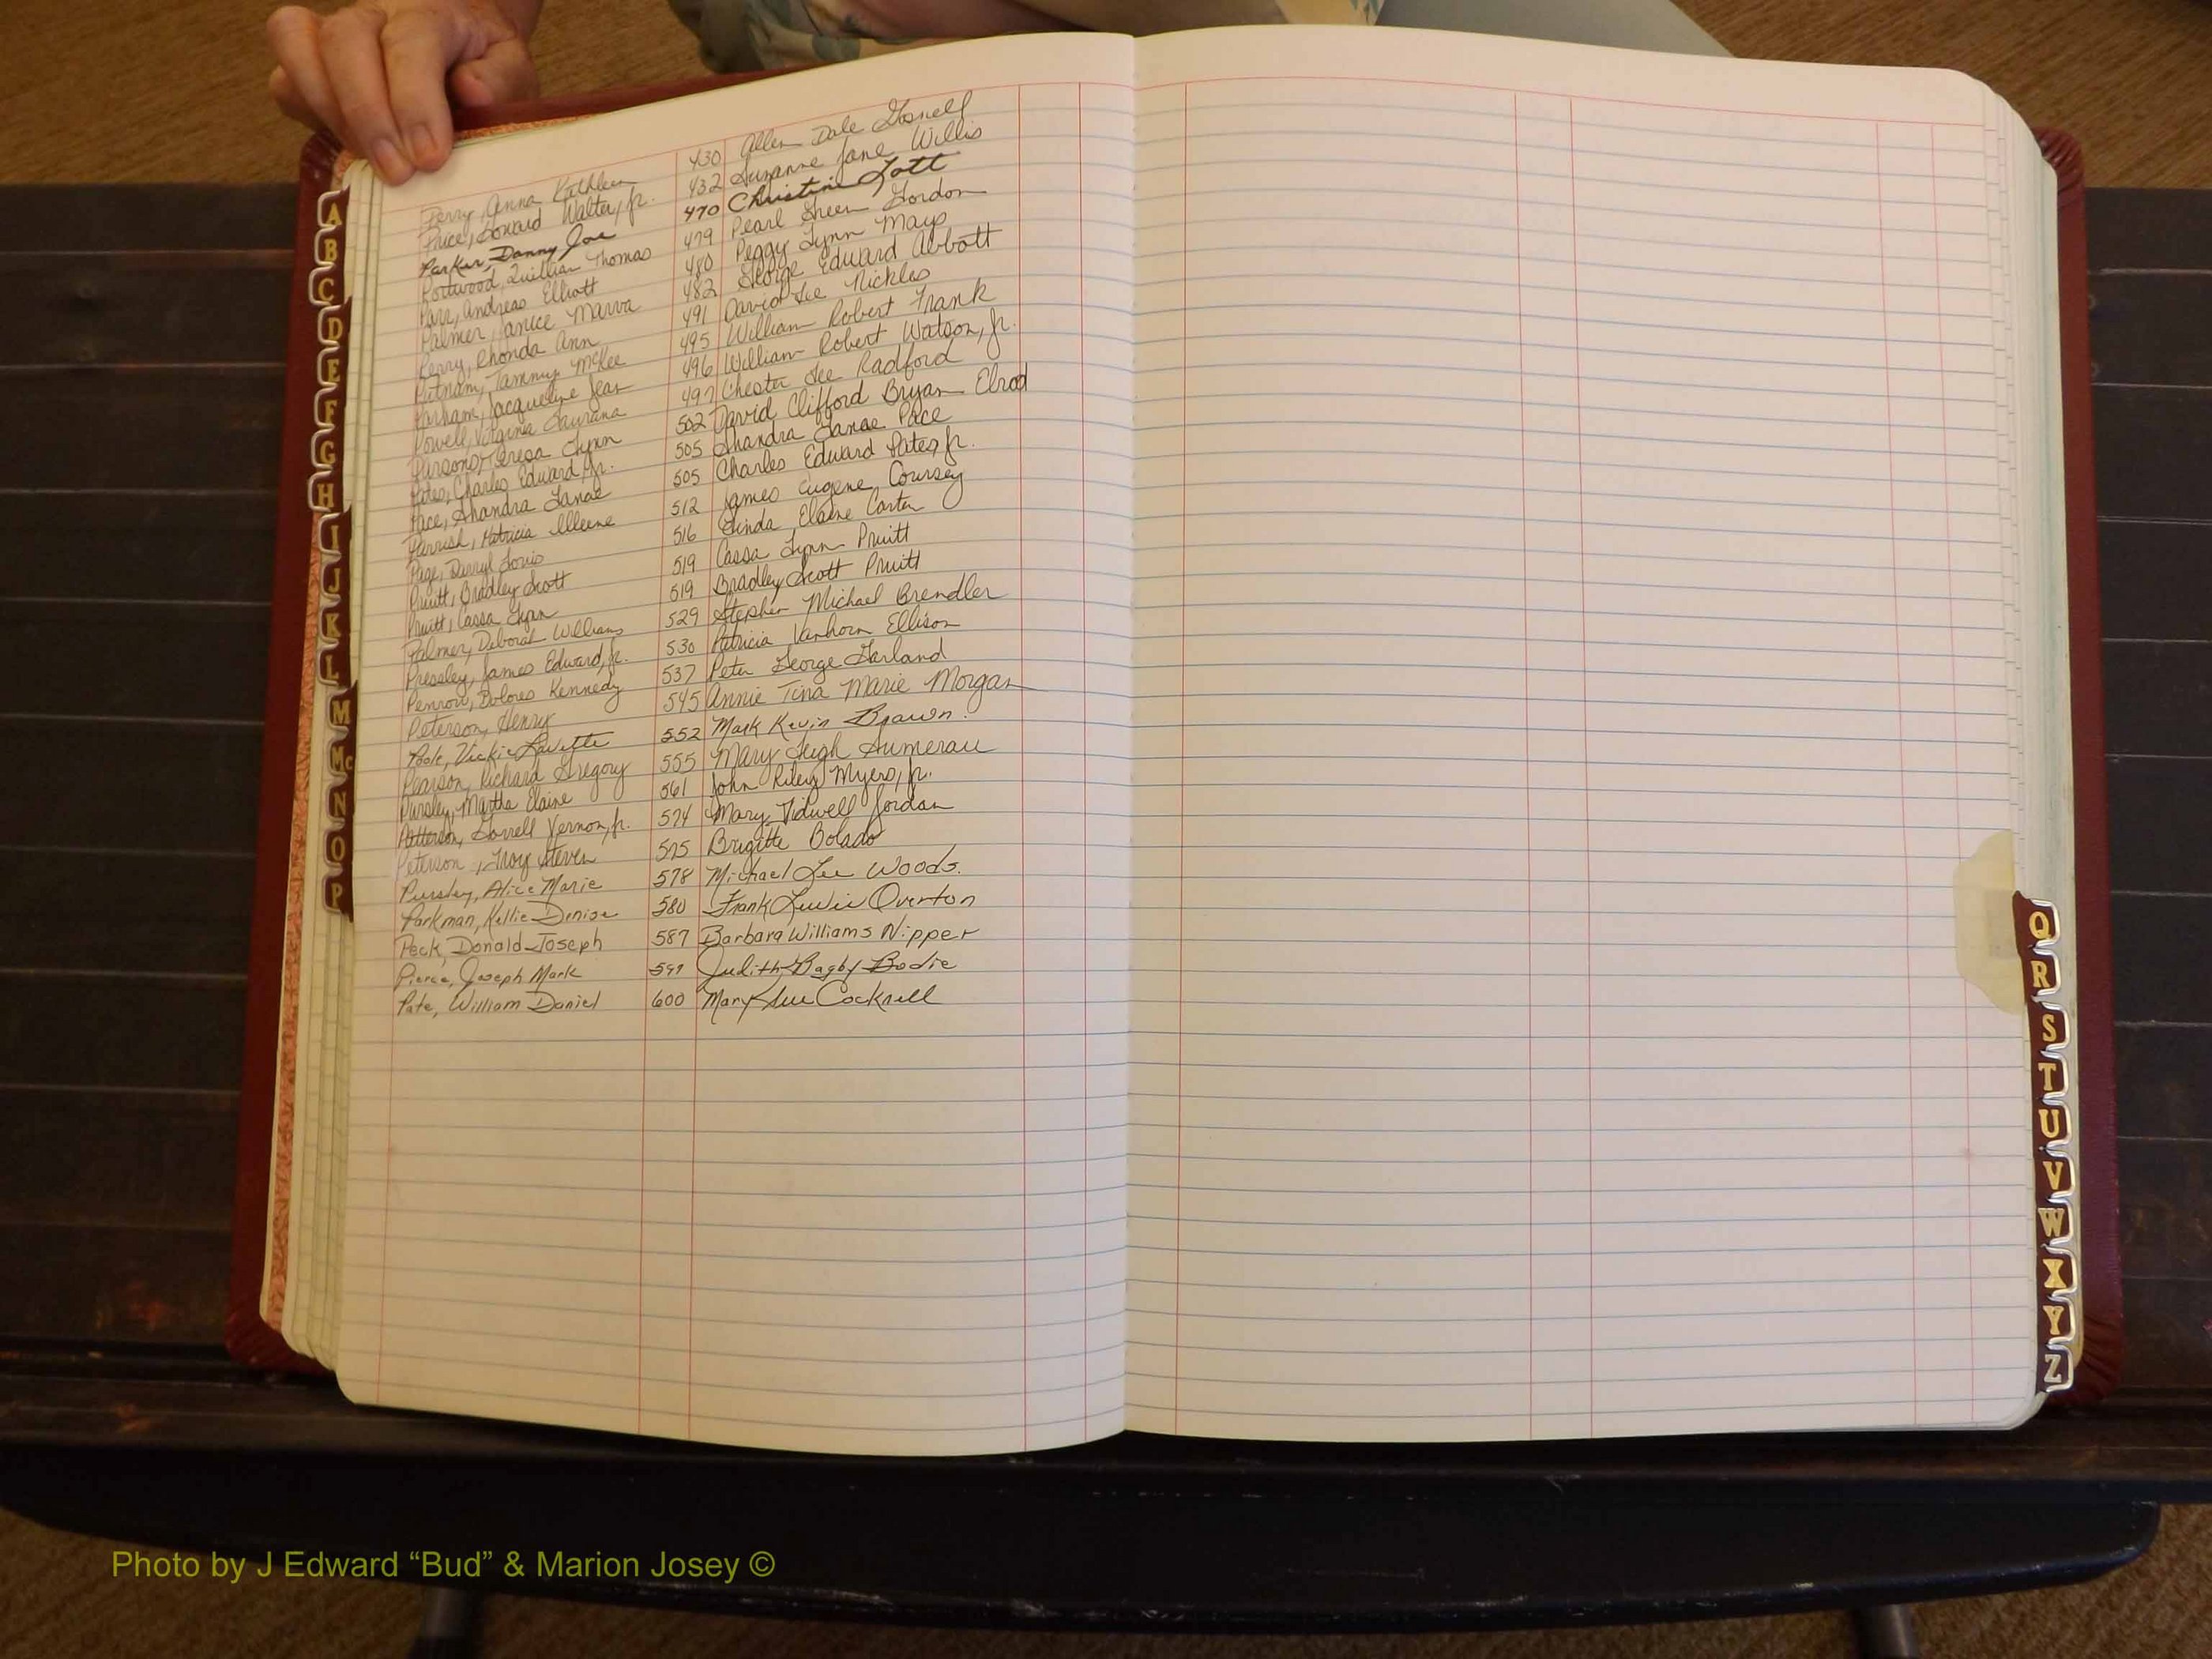 Perry, Anna Kathleen 430 Allen Dale Gosnell
Price, Howard Walter, Jr. 432 Suzanne Jane Willis
Parker, Danny Joe 470 Christine Lott
Portwood, Quillian Thomas 479 Pearl Green Gordon
Parr, Andreas Elliott 480 Peggy Lynn Mays
Palmer, Janice Marva 482 George Edward Abbott
Perry, Rhonda Ann 491 David Lee Nickles
Putnam, Tammy McKee 495 William Robert Frank
Parham, Jacqueline Jean 496 William Robert Watson, Jr.
Powell, Virginia 497 Chester Lee Radford
Parsons, Teresa Lynn 502 David Clifford Bryan Elrod
Pates, Charles Edward, Jr. 505 Shandra Janae Pace
Pace, Shandra Janae 505 Charles Edward Pates, Jr.
Parrish, Patricia Illeene 512 James Eugene Coursey
Page, Darryl Louis 516 Linda Elaine Carter
Pruitt, Bradley Scott 519 Cassa Lynn Pruitt
Pruitt, Cassa Lynn 519 Bradley Scott Pruitt
Palmer, Deborah Williams 529 Stephen Michael Brendler
Pressley, James Edward, Jr. 530 Patricia Vanhorn Ellison
Penrow, Dolores Kennedy 537 Peter George Garland
Peterson, Henry 545 Annie Tina Marie Morgan
Pook, Vickie Lavette 552 Mark Kevin Brawn.
Pearson, Richard Gregory 555 Mary Leigh Sumerau
Pursley, Martha Elaine 561 John Riley Myers, Jr.
Patterson, Vernon, Jr. 574 Mary Tidwell Jordan
Peterson, Troy Steven 575 Brigitte Bolado
Pursley, Alice Marie 578 Michael Lee Woods.
Parkman, Kellie Denise 580 Frank Lewie Overton
Peck, Donald Joseph 587 Barbara Williams Nipper
Pierce, Joseph Mark Judith Bagby Bodie
Pate, William Daniel 600 Mary Sue Cocknell
A
B
C
D
E
F
G
H
I
J
K
L
M
Mc
N
O
P
Q
R
S
T
U
V
W
X
Y
Z
Photo by J Edward “Bud” & Marion Josey ©